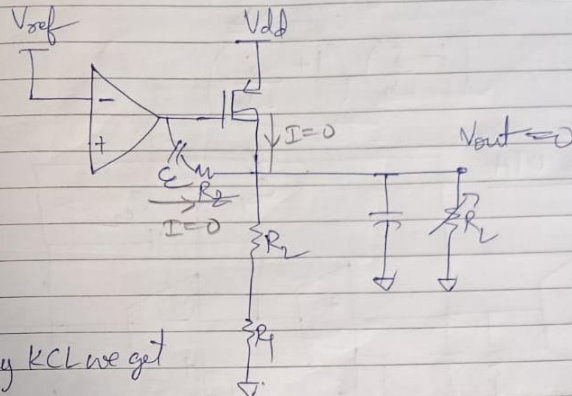 Vref
Vdd
-
+
I=0
Vout=0
C
Rz
I=0
R2
RL
R1
y KCL we get